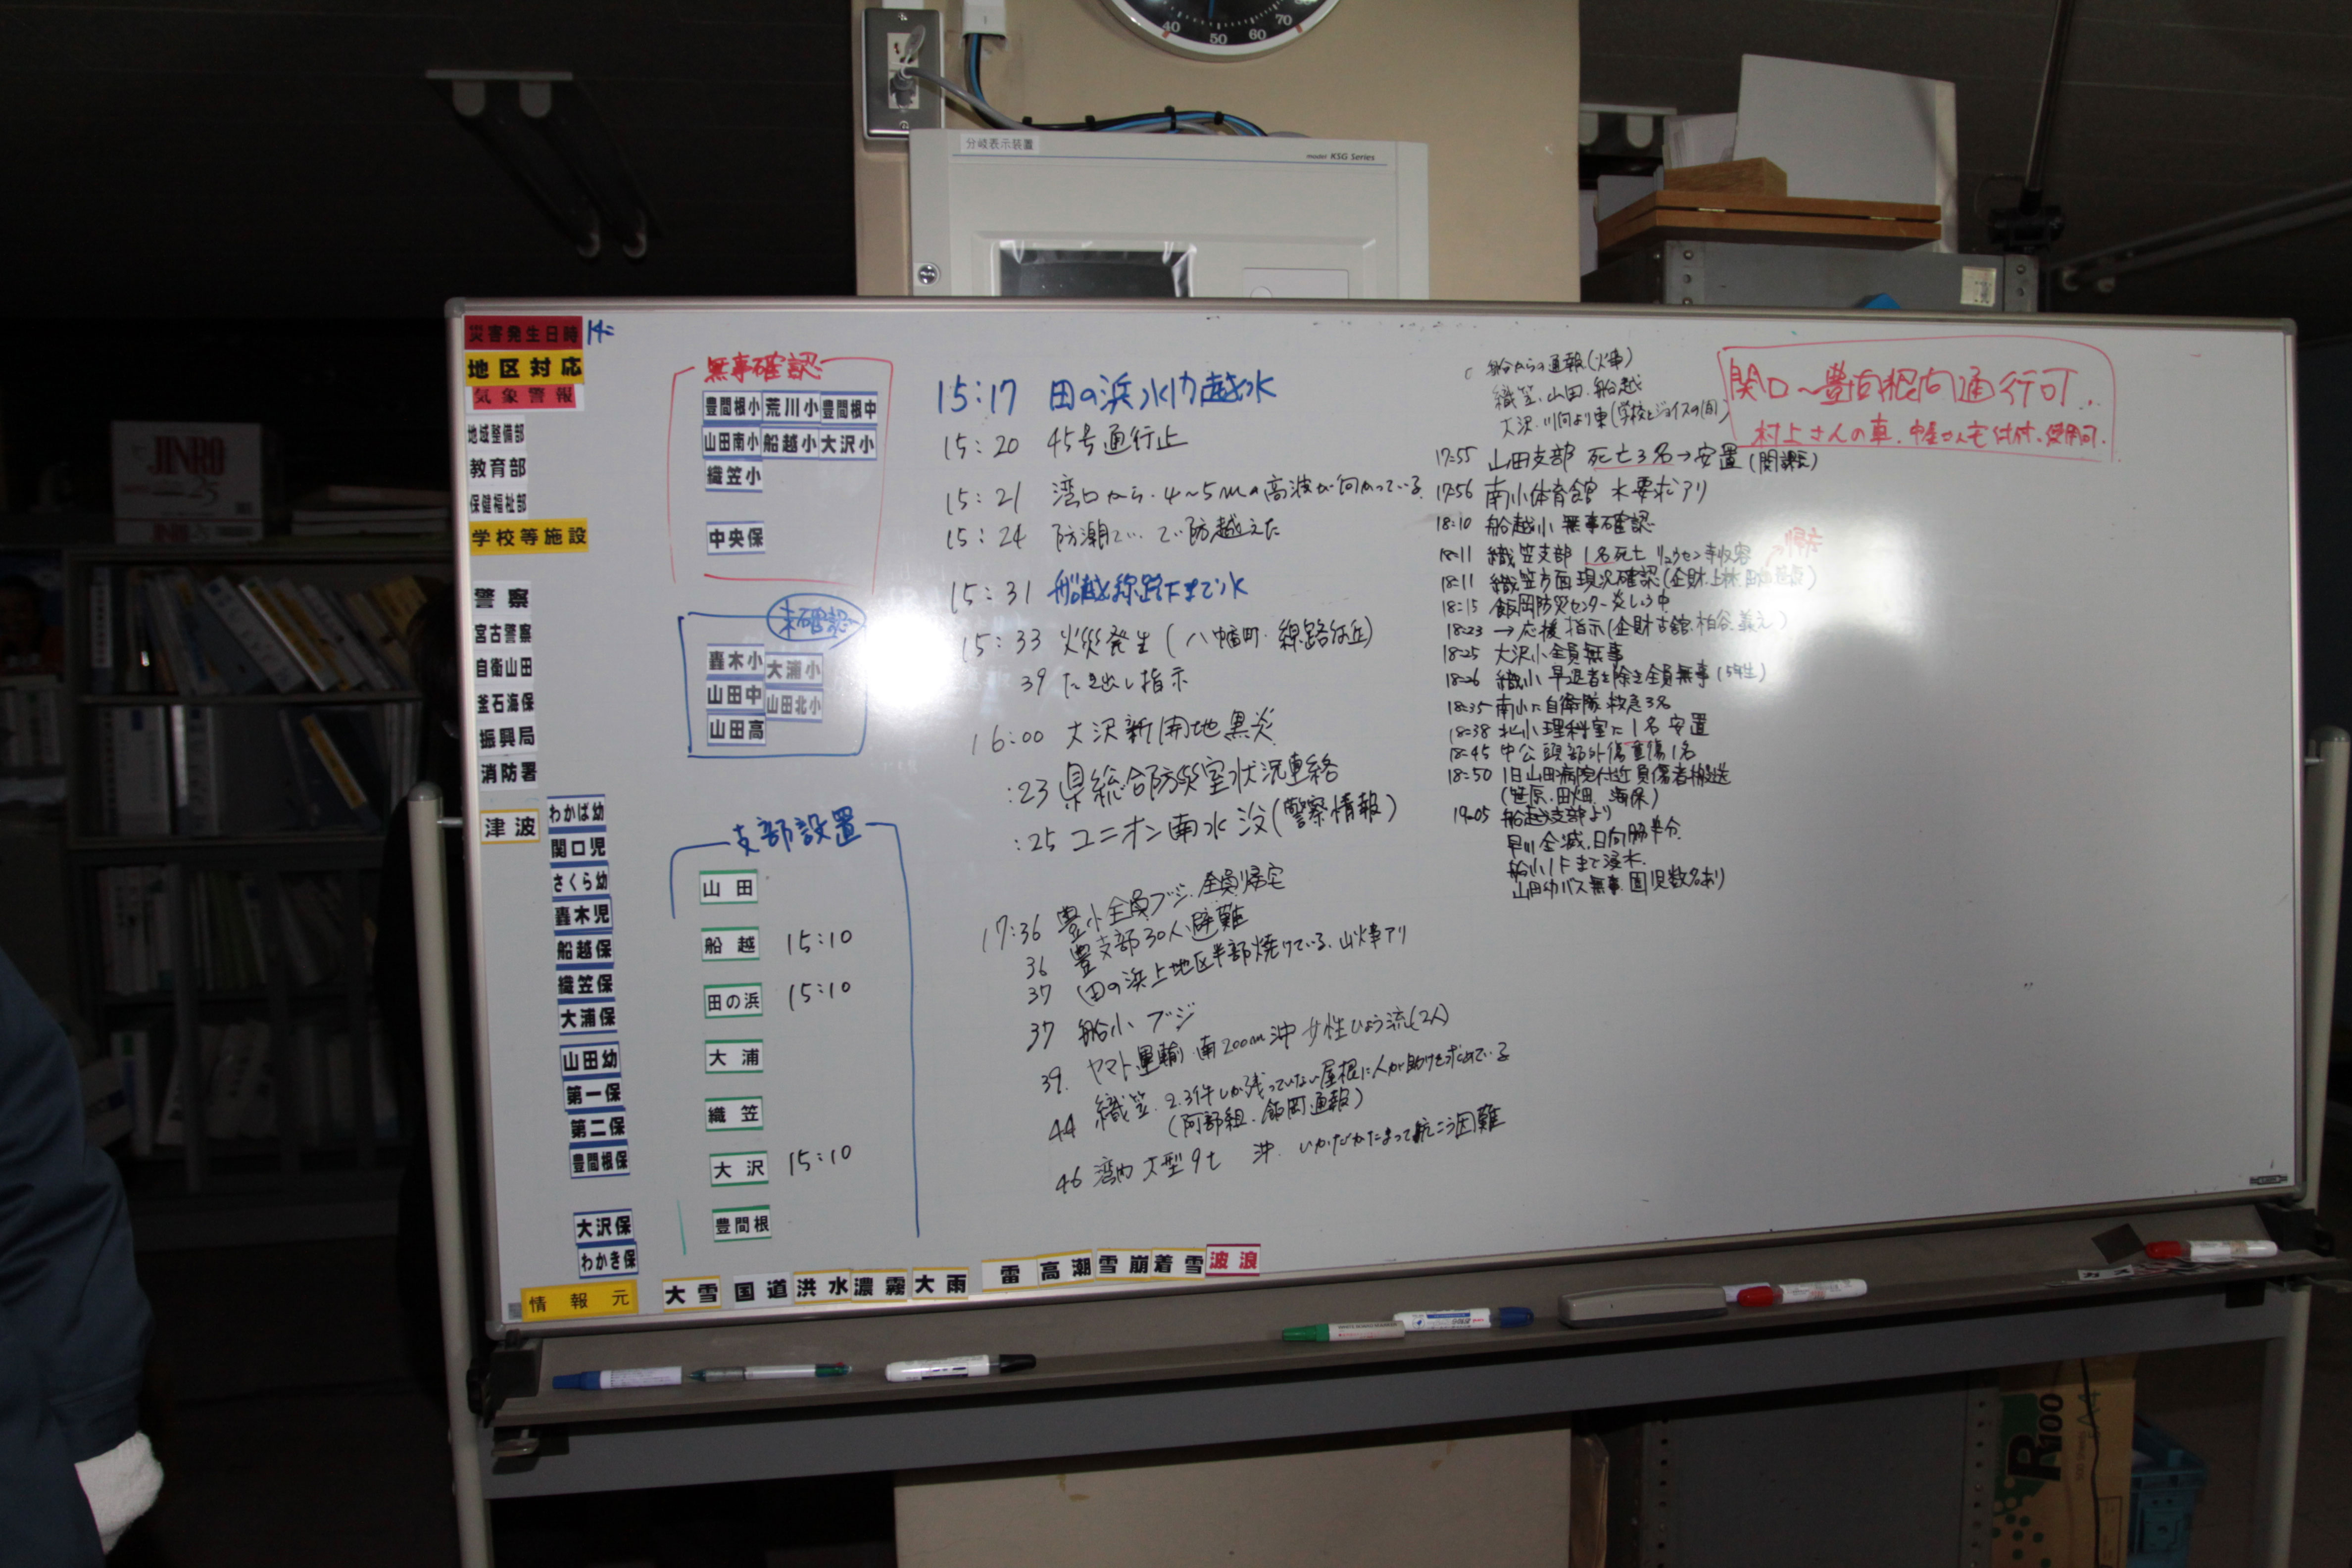 40
50
60
70
分岐表示装置
model KSG Series
JINRO
25
災害発生日時 14:
地区対応
気象警報
地域整備部
教育部
保健福祉部
学校等施設
警察
宮古警察
自衛山田
釜石海保
振興局
消防署
津波
わかば幼
関口児
さくら幼
轟木児
船越保
織笠保
大浦保
山田幼
第一保
第二保
豊間根保
大沢保
わかき保
情報元
無事確認
豊間根小 荒川小 豊間根中
山田南小 船越小 大沢小
織笠小
中央保
未確認
轟木小 大浦小
山田中 山田北小
山田高
支部設置
山田
船越 15:10
田の浜 15:10
大浦
織笠
大沢 15:10
豊間根
大雪 国道 洪水 濃霧 大雨 雷 高潮 雪崩 着雪 波浪
15:17 田の浜 水门越水
15:20 45号通行止
15:21 湾口から 4~5mの高波が向かっている
15:24 防潮てい てい防越えた
15:31 船越線路下まで水
15:33 火災発生(八幡町 線路付近)
39 たき出し指示
16:00 大沢新開地黒炎
:23 県総合防災室状況連絡
:25 ユニオン南水没(警察情報)
17:36 豊小全員ブジ、全員帰宅
36 豊支部30人避難
37 田の浜上地区半部焼けている、山火事アリ
37 船小ブジ
39. ヤマト運輸 南200m沖 女性ひょう流(2人)
44 織笠、2.3件しか残っていない屋根に人が助けを求めている
(阿部組、飯岡通報)
46 湾内 大型9t 沖 いかだかたまって航こう困難
船からの通報(火事)
織笠、山田、船越
大沢川向より東(学校とジョイスの間)
17:55 山田支部 死亡3名→安置(関課長)
17:56 南小体育館 水要求アリ
18:10 船越小 無事確認
18:11 織笠支部 1名死亡 リュウセン寺収容
18:11 織笠方面現況確認(企財、上林
18:15 飯岡防災センター炎しょう中
18:23 →応援指示(企財古舘、柏谷、義元)
18:25 大沢小全員無事
18:26 織小 早退者を除き全員無事(5年生)
18:35 南小に自衛隊 救急3名
18:38 北小理科室に1名安置
18:45 中公 頭部外傷重傷1名
18:50 旧山田病院付近負傷者搬送
(笹原、田畑、海保)
19:05 船越支部より
早川全滅、日向脇半分
船小1Fまで浸水
山田幼バス無事、園児数名あり
関口~豊間根向通行可
村上さんの車、中屋さん宅付付、使用可
R100
A4